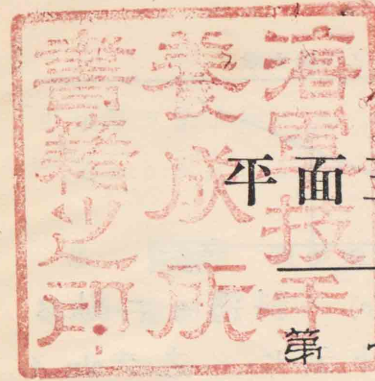 海軍技手
養成所
書籍之印
平面
第